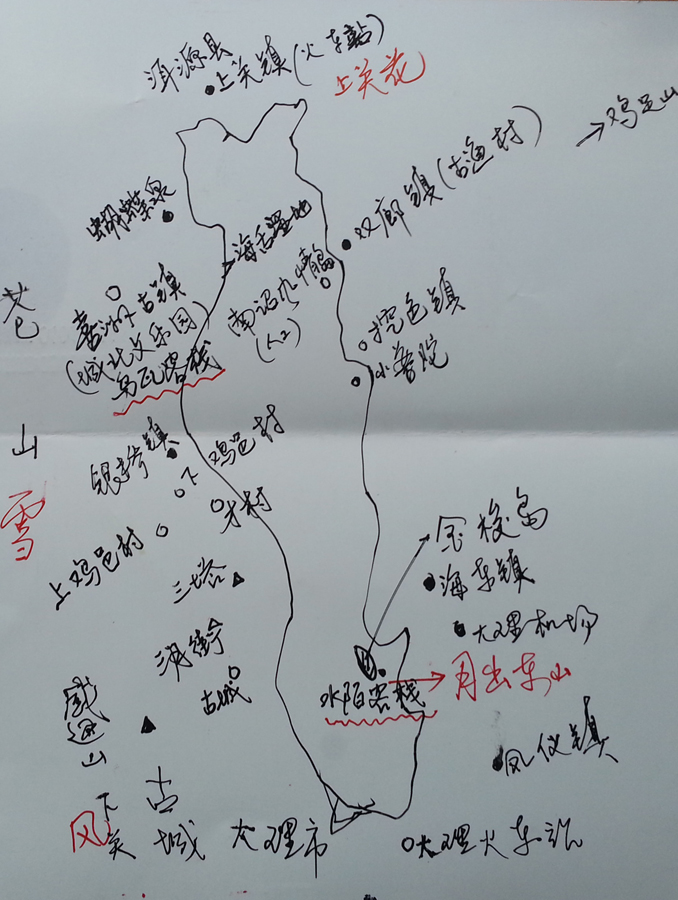 洱源县
上关镇(火车站)
上关花
鸡足山
双廊镇(古渔村)
蝴蝶泉
海舌湿地
南诏风情岛
(人工)
苍
喜洲古镇
(城北文乐园)
挖色镇
小普陀
山
雪
银桥镇
下鸡邑村
才村
上鸡邑村
金梭岛
海东镇
三塔
大理机场
洱街
古城
水陌客栈
月出东山
感通山
凤仪镇
风
下关
古城
大理市
大理火车站